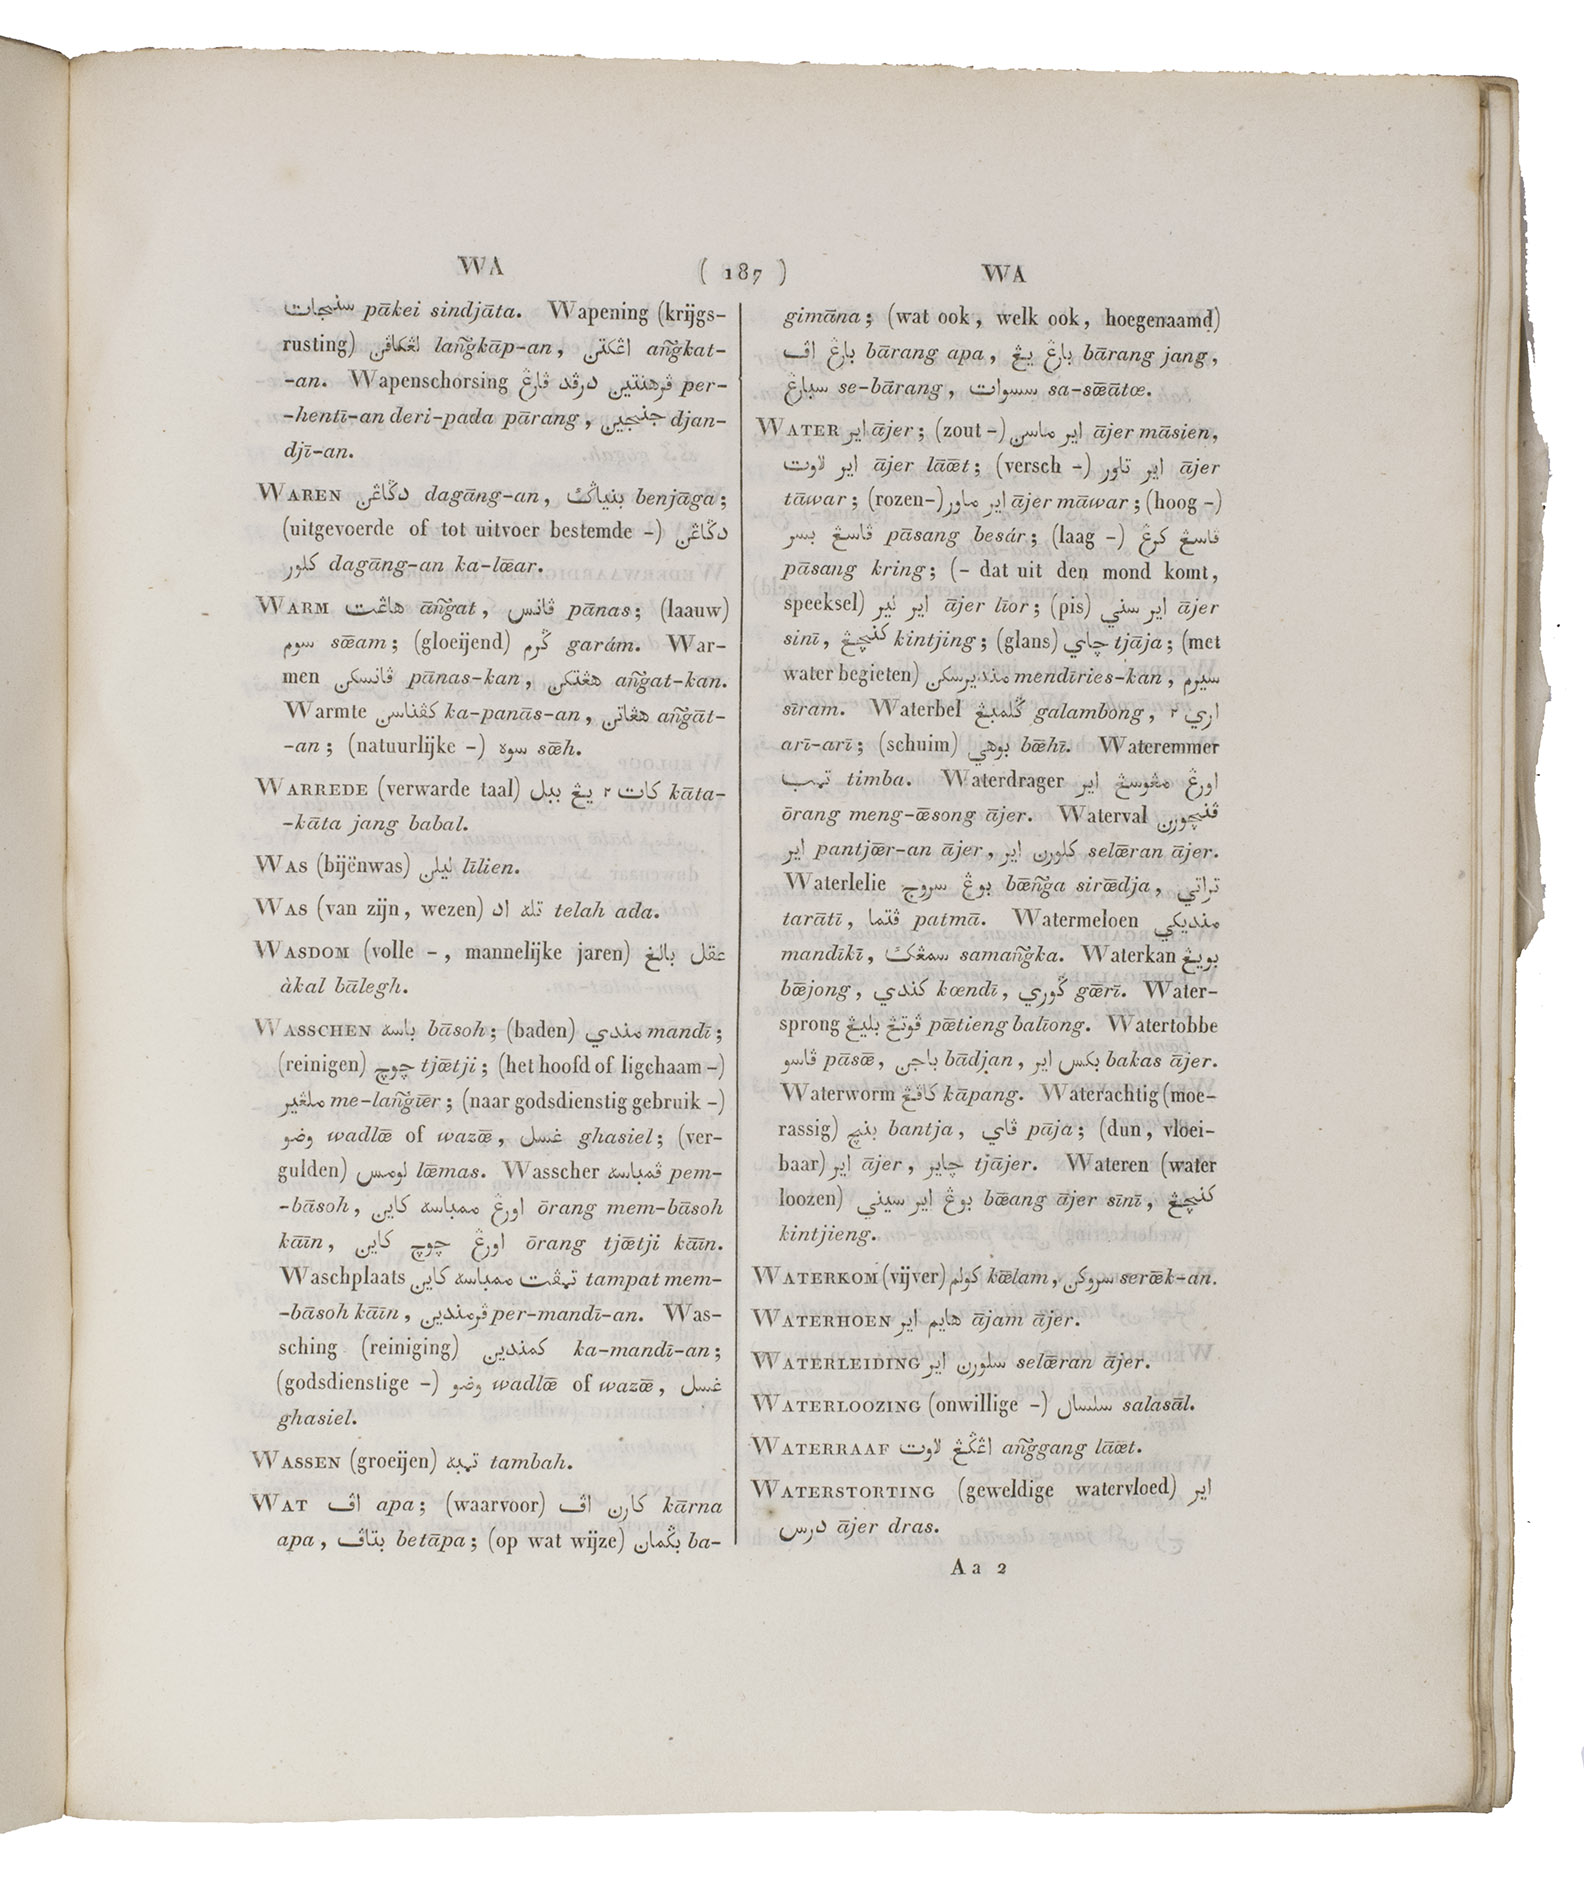 WA
( 187 )
WA
سنجات pākei sindjāta. Wapening (krijgs-
rusting) لڠكاڤن lañgkāp-an, اڠكتن añgkat-
-an. Wapenschorsing ڤرهنتين درڤد ڤارڠ per-
-hentī-an deri-pada pārang, جنجين djan-
djī-an.
WAREN دڬاڠن dagāng-an, بنياڬ benjāga;
(uitgevoerde of tot uitvoer bestemde -) دڬاڠن
كلور dagāng-an ka-lœ̄ar.
WARM هاڠت āñgat, ڤانس pānas; (laauw)
سوم sœ̄am; (gloeijend) ڬرم garám. War-
men ڤانسكن pānas-kan, هڠتكن añgat-kan.
Warmte كڤناسن ka-panās-an, هڠاتن añgāt-
-an; (natuurlijke -) سوه sœ̄h.
WARREDE (verwarde taal) كات ٢ يڠ ببل kāta-
-kāta jang babal.
WAS (bijënwas) ليلن līlien.
WAS (van zijn, wezen) تله اد telah ada.
WASDOM (volle -, mannelijke jaren) عقل بالغ
àkal bālegh.
WASSCHEN باسه bāsoh; (baden) مندي mandī;
(reinigen) چوچ tjœ̄tji; (het hoofd of ligchaam -)
ملڠير me-lañgīer; (naar godsdienstig gebruik -)
وضو wadlœ̄ of wazœ̄, غسل ghasiel; (ver-
gulden) لومس lœ̄mas. Wasscher ڤمباسه pem-
-bāsoh, اورڠ ممباسه كاين ōrang mem-bāsoh
kāīn, اورڠ چوچ كاين ōrang tjœ̄tji kāīn.
Waschplaats تمڤت ممباسه كاين tampat mem-
-bāsoh kāīn, ڤرمندين per-mandī-an. Was-
sching (reiniging) كمندين ka-mandī-an;
(godsdienstige -) وضو wadlœ̄ of wazœ̄, غسل
ghasiel.
WASSEN (groeijen) تمبه tambah.
WAT اڤ apa; (waarvoor) كارن اڤ kārna
apa, بتاڤ betāpa; (op wat wijze) بڬمان ba-
gimāna; (wat ook, welk ook, hoegenaamd)
بارڠ اڤ bārang apa, بارڠ يڠ bārang jang,
سبارڠ se-bārang, سسوات sa-sœ̄ātœ.
WATER اير ājer; (zout -) اير ماسن ājer māsien,
اير لاوت ājer lāœ̄t; (versch -) اير تاور ājer
tāwar; (rozen-) اير ماور ājer māwar; (hoog -)
ڤاسڠ بسر pāsang besár; (laag -) ڤاسڠ كرڠ
pāsang kring; (- dat uit den mond komt,
speeksel) اير لير ājer līor; (pis) اير سني ājer
sinī, كنچڠ kintjing; (glans) چاي tjāja; (met
water begieten) منديرسكن mendīries-kan, سيرم
sīram. Waterbel ڬلمبڠ galambong, اري ٢
arī-arī; (schuim) بوهي bœ̄hī. Wateremmer
تمب timba. Waterdrager اورڠ مڠوسڠ اير
ōrang meng-œ̄song ājer. Waterval ڤنچورن
اير pantjœ̄r-an ājer, كلورن اير selœ̄ran ājer.
Waterlelie بوڠ سروج bœ̄ñga sirœ̄dja, تراتي
tarātī, ڤتما patmā. Watermeloen منديكي
mandīkī, سمڠك samañgka. Waterkan بويڠ
bœ̄jong, كندي kœndī, ڬوري gœ̄rī. Water-
sprong ڤوتڠ بليڠ pœ̄tieng balīong. Watertobbe
ڤاسو pāsœ̄, باجن bādjan, بكس اير bakas ājer.
Waterworm كاڤڠ kāpang. Waterachtig (moe-
rassig) بنچ bantja, ڤاي pāja; (dun, vloei-
baar) اير ājer, چاير tjājer. Wateren (water
loozen) بوڠ اير سيني bœ̄ang ājer sīnī, كنچڠ
kintjieng.
WATERKOM (vijver) كولم kœ̄lam, سروكن serœ̄k-an.
WATERHOEN هايم اير ājam ājer.
WATERLEIDING سلورن اير selœ̄ran ājer.
WATERLOOZING (onwillige -) سلسال salasāl.
WATERRAAF اڠڬڠ لاوت añggang lāœ̄t.
WATERSTORTING (geweldige watervloed) اير
درس ājer dras.
Aa 2